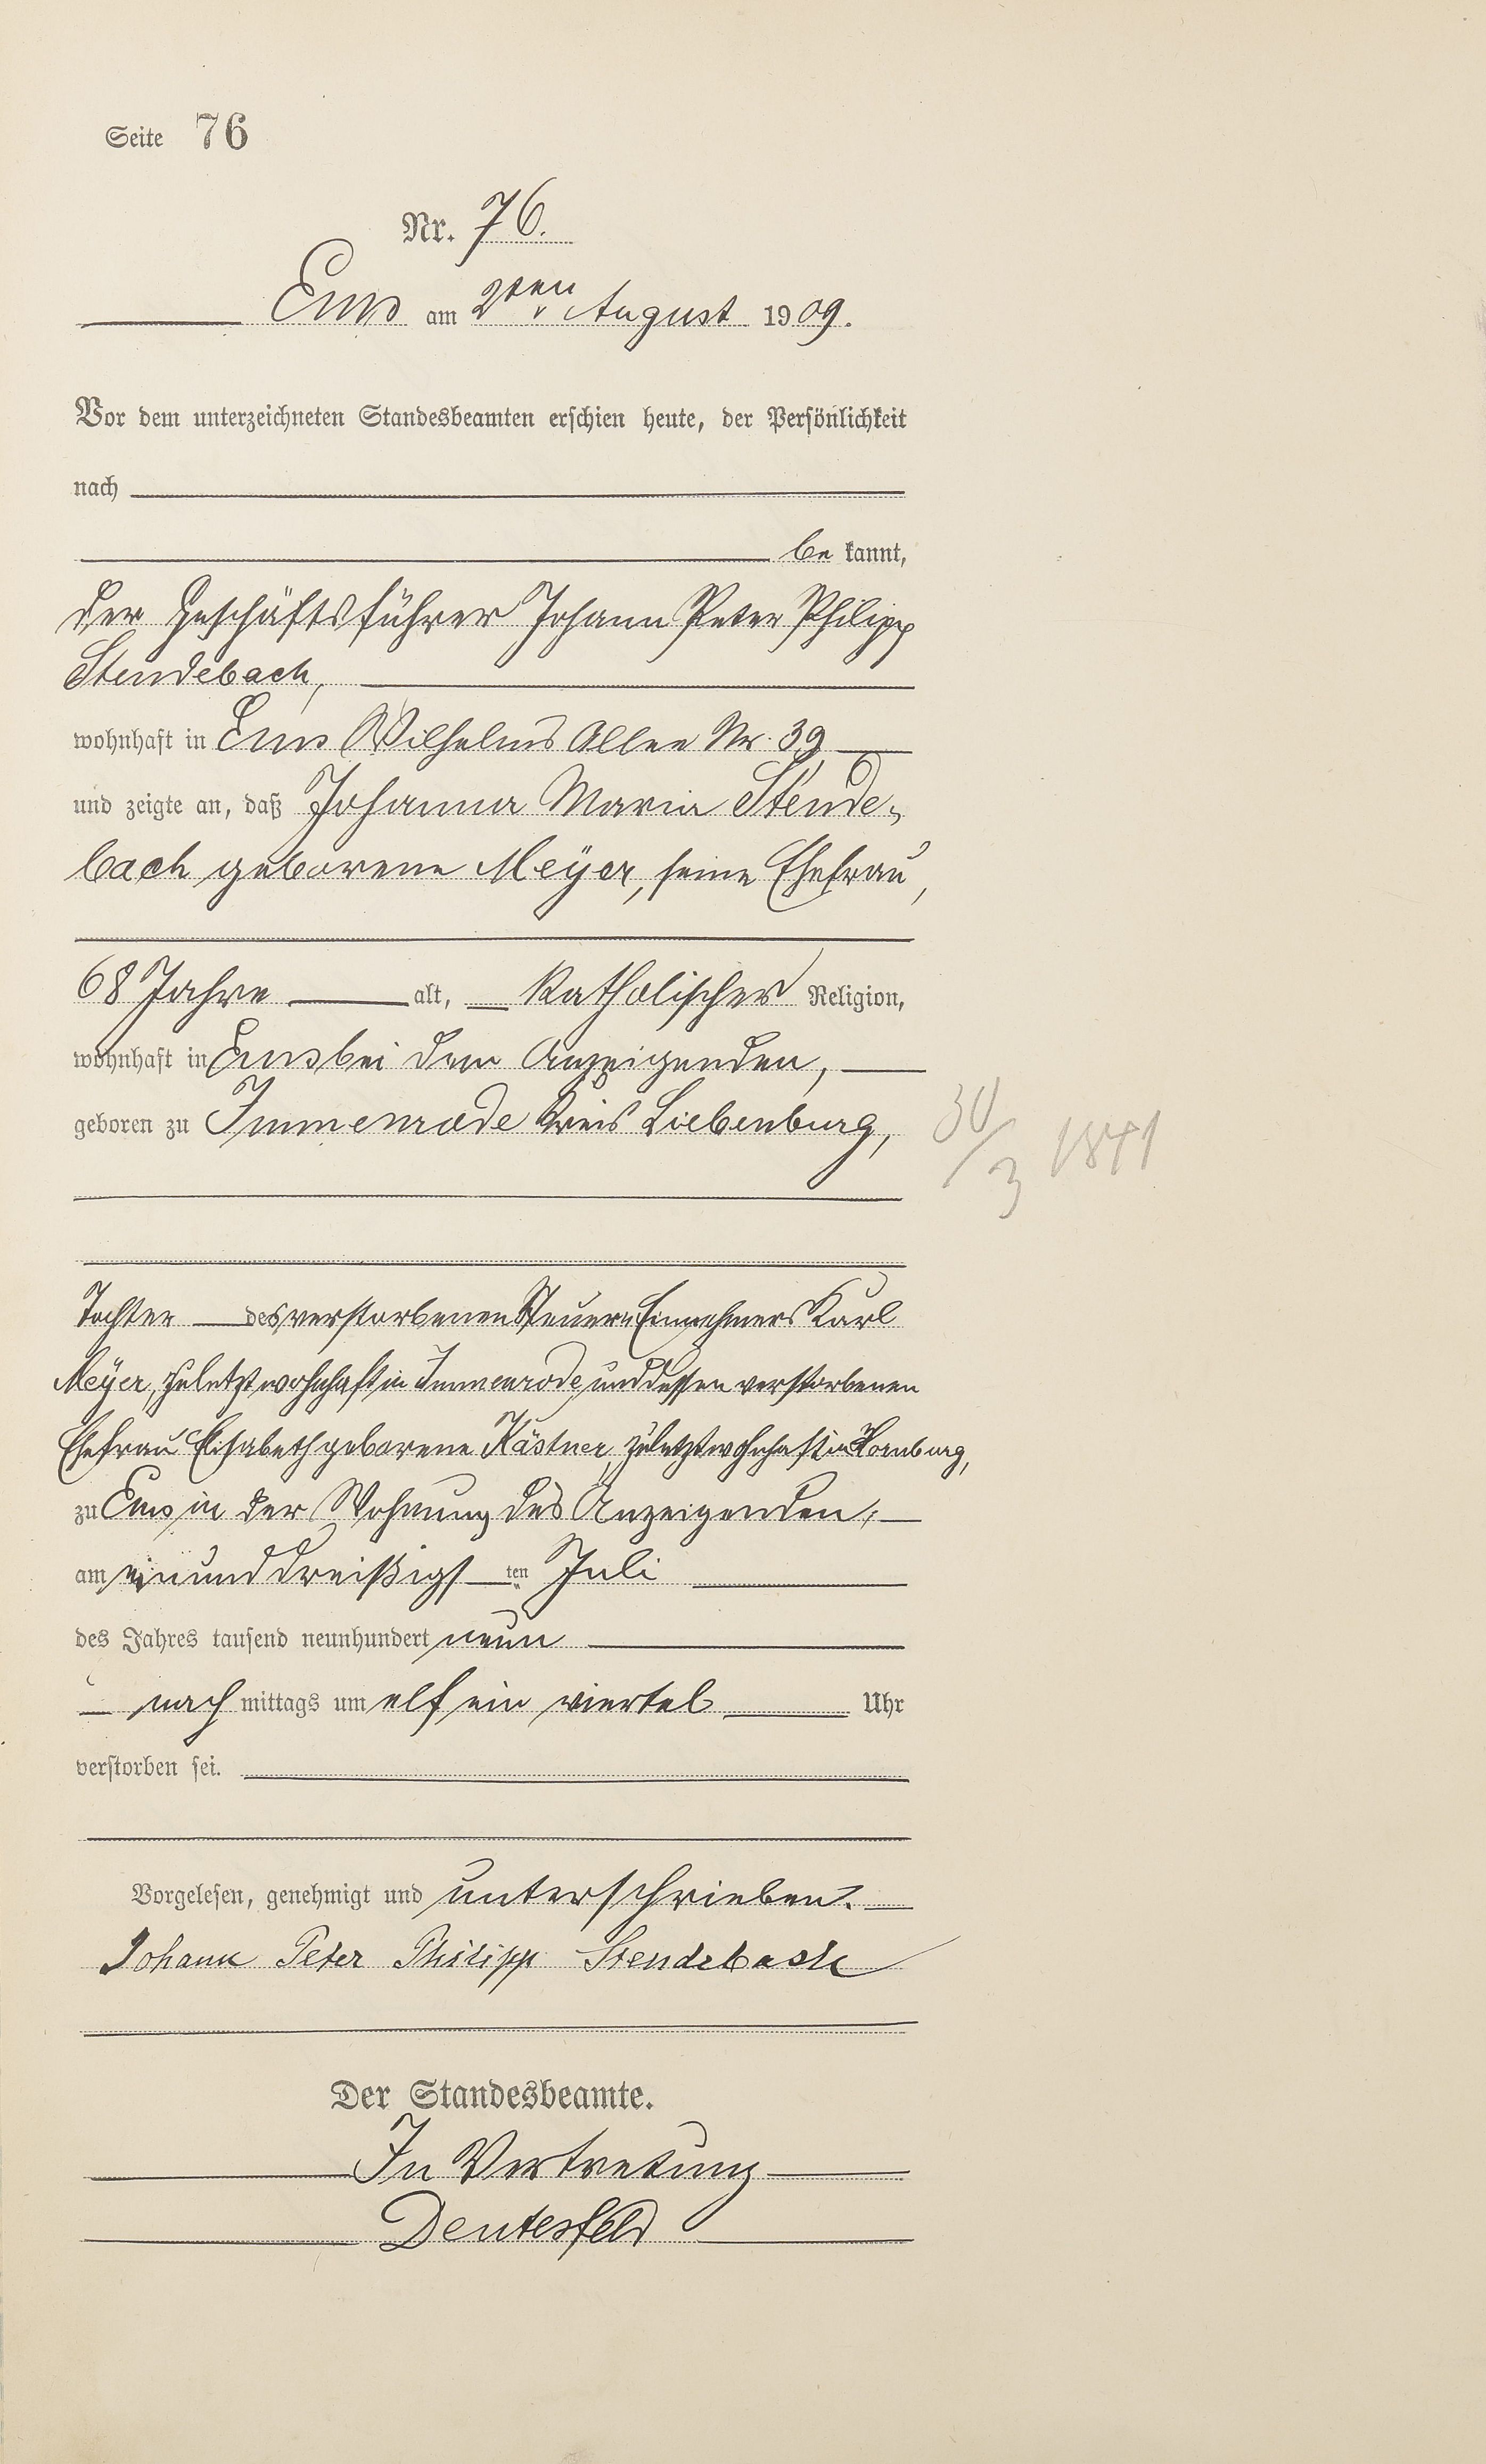 Seite 76
Nr. 76.
Ems am 2ten August 1909.
Vor dem unterzeichneten Standesbeamten erschien heute, der Persönlichkeit
nach
be kannt,
der Geschäftsführer Johann Peter Philipp
Stendebach,
wohnhaft in Ems Wilhelms Allee Nr. 39
und zeigte an, daß Johanna Maria Stende-
bach geborene Meÿer, seine Ehefrau,
68 Jahre alt, katholischer Religion,
wohnhaft in Ems bei dem Anzeigenden,
geboren zu Immenrode Kreis Liebenburg,
30/3 1841
Tochter des verstorbenen Steuer-Einnehmers Karl
Meÿer, zuletzt wohnhaft in Immenrode, und dessen verstorbenen
Ehefrau Elisabeth geborene Kästner, zuletzt wohnhaft in Hornburg,
zu Ems in der Wohnung des Anzeigenden,
am einunddreißigsten Juli
des Jahres tausend neunhundert neun
nach mittags um elf ein viertel Uhr
verstorben sei.
Vorgelesen, genehmigt und unterschrieben.
Johann Peter Philipp Stendebach
Der Standesbeamte.
In Vertretung
Deutesfeld